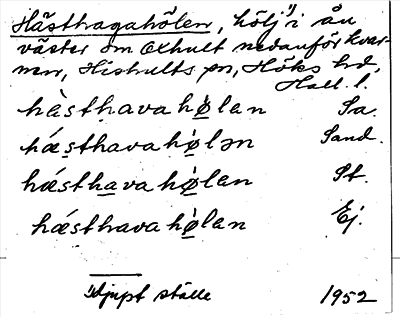 Hästhagahölen, hölj¹⁾ i ån
väster om Oxhult nedanför kvar-
nen, Hishults sn, Höks hd,
Hall. l.
hàsthavahø̀lan Sa.
hǽsthavahø̀lən Sand.
hǽsthavahø̀lan St.
hǽsthavahø̀lan Ej.
¹⁾djupt ställe 1952